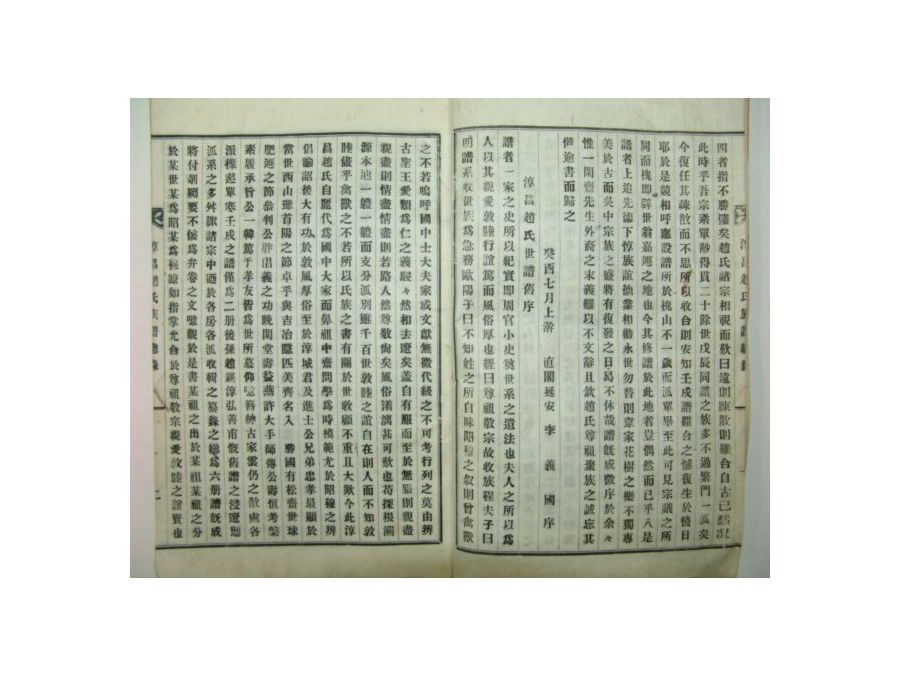 四者指不勝僂矣趙氏譜宗相視而歎曰遠則踈散則難合自古已然況
此時乎吾宗素單尠得貫二十餘世戊辰同譜之族多不過繁門一派矣
今復任其疎散而不思所以收合則安知壬戌譜難合之憾復生於後日
耶於是競相呼應設譜所於槐山不一歲而派單畢至此可見宗議之所
同而槐即辟世翁嘉遯之地也今其修譜於此地者豈偶然而已乎凡是
譜者上追先德下惇族誼恤業相勸永世勿替則韋家花樹之樂不獨專
美於古吳中宗族之盛將有復發之日曷不休哉譜旣成徵序於余々
惟一閑齋先生外裔之末義難以不文辭且歆趙氏尊祖聚族之誠忘其
僭逾書而歸之
癸酉七月上澣 直閣延安 李 義 國 序
淳昌趙氏世譜舊序
譜者一家之史所以紀實即周官小史奠世系之遺法也夫人之所以爲
人以其親愛敦睦行誼篤而風俗厚也經曰尊祖敬宗故收族程夫子曰
明譜系收世族爲急務歐陽子曰不知姓之所自昧昭穆之叙則曾禽獸
之不若嗚呼國中士大夫家或文獻無徵代級之不可考行列之莫由辨
古聖王愛類爲仁之義駸々然相去遼矣盖自有服而至於無服則親盡
親盡則情盡情盡則若路人然尊敬尙矣風俗漓漓甚可歎也苟探根溯
源本迪一體一體而支分派別雖千百世敦睦之誼自在則人而不知敦
睦儘乎禽獸之不若所以氏族之書有關於世敎顧不重且大歟今此淳
昌趙氏自麗代爲國中大家而鼻祖中齋問學爲時模範尤於昭穆之辨
倡論詔後大有功於敦風厚俗至於淳城君及進士公兄弟忠孝最顯於
當世西山珊首陽之節卓乎與吉冶隱匹美齊名入 勝國有松齋世球
肥遯之節恭判公胖倡義之功晩閑堂壽益燕許大手師傳公壽恒考槃
素履承旨公一韓篤于孝友皆爲世所慕仰 善神古家雲仍之散處各
派樸慥單寒壬戌之譜僅爲二册後孫趙鎂淳弘善甫慨舊譜之浸遼恕
派系之多舛諏諸宗中迺於各房各派收輯之纂錄之總爲六册譜旣成
將付剞劂要不佞爲弁卷之文竊觀於是書某祖之出於某祖某派之分
於某世某爲昭某爲穆瞭如指掌允合於尊祖敬宗親愛敦睦之誼賢也
淳昌趙氏族譜總錄
淳昌趙氏族譜總錄
二